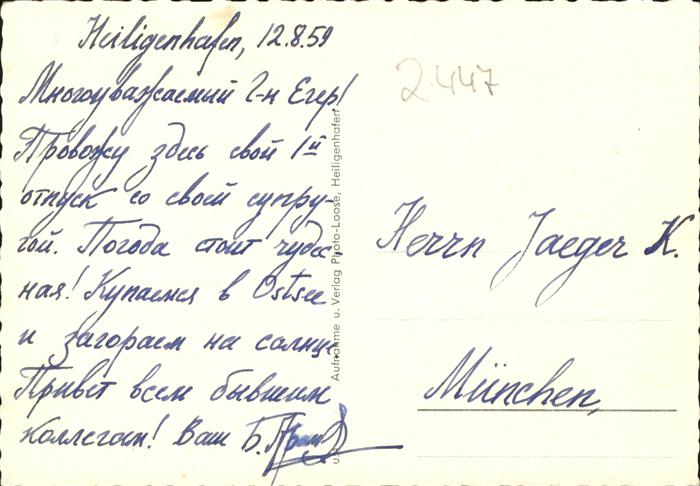 Heiligenhafen, 12.8.59
Многоуважаемый г-н Егер!
Провожу здесь свой 1й
отпуск со своей супру-
гой. Погода стоит чудес-
ная! Купаемся в Ostsee
и загораем на солнце.
Привет всем бывшим
коллегам! Ваш Б.
2.447
Herrn Jaeger K.
München,
Aufnahme u. Verlag Photo-Loose, Heiligenhafen